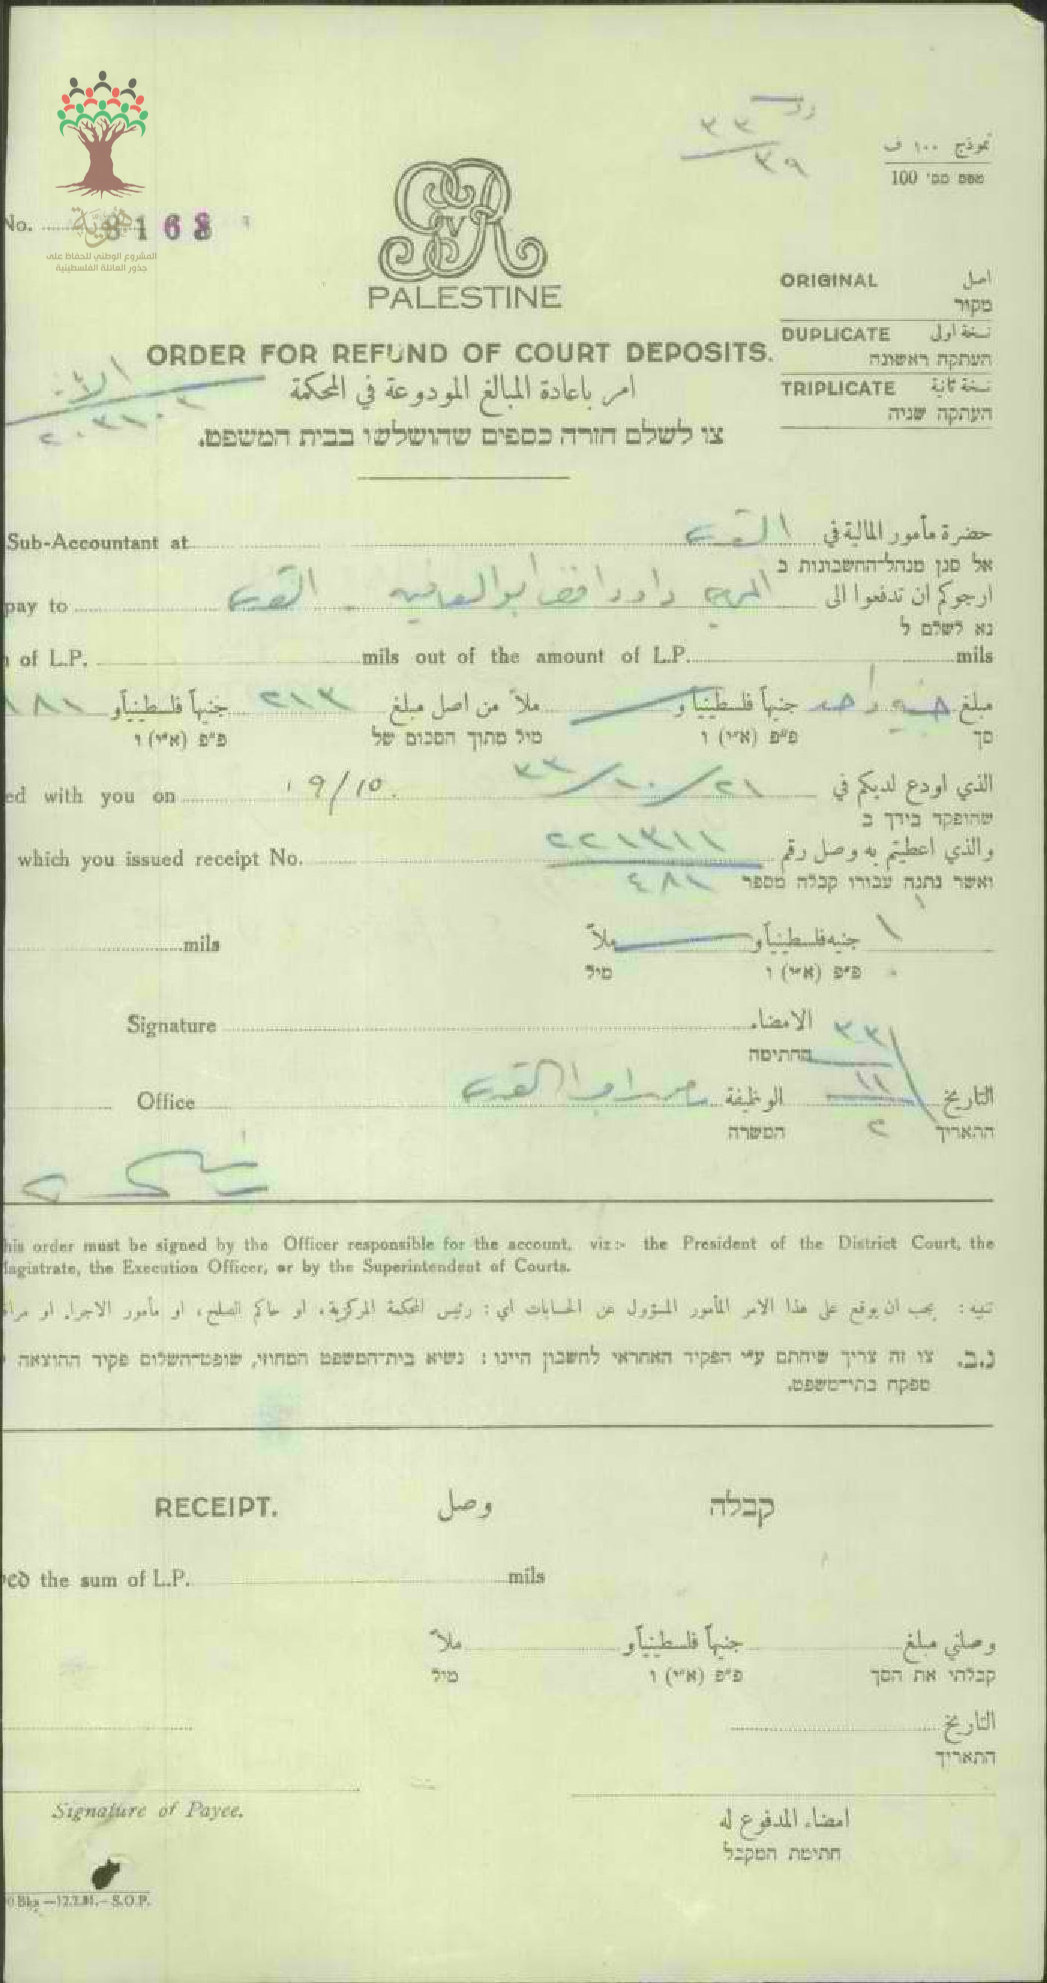 نموذج ١٠٠ ف
טפס מס' 100
٣٣
٣٩
No. 8168
هوية
المشروع الوطني للحفاظ على
جذور العائلة الفلسطينية
PALESTINE
ORIGINAL اصل
מקור
DUPLICATE نسخة اولى
העתקה ראשונה
TRIPLICATE نسخة ثانية
העתקה שניה
ORDER FOR REFUND OF COURT DEPOSITS.
امر باعادة المبالغ المودوعة في المحكمة
צו לשלם חזרה כספים שהושלשו בבית המשפט.
Sub-Accountant at القدس حضرة مأمور المالية في
אל סגן מנהל-החשבונות ב
pay to داود القدس ارجوكم ان تدفعوا الى
נא לשלם ל
of L.P. mils out of the amount of L.P. mils
مبلغ جنيه واحد جنيهاً فلسطينياً و ملاً من اصل مبلغ ٢١٣ جنيهاً فلسطينياً و ١٨١
סך פ״פ (א״י) ו מיל מתוך הסכום של פ״פ (א״י) ו
ed with you on 19/10. ٢١/١٠/٣٣ الذي اودع لديكم في
שהופקד בידך ב
which you issued receipt No. ٢٢١٣١١ والذي اعطيتم به وصل رقم
٤٨١ ואשר נתנה עבורו קבלה מספר
mils ١ جنيه فلسطينياً و ملاً
פ״פ (א״י) ו מיל
Signature الامضاء
החתימה
٣٣
١١
٢
Office القدس الوظيفة التاريخ
המשרה התאריך
his order must be signed by the Officer responsible for the account, viz:- the President of the District Court, the
Magistrate, the Execution Officer, or by the Superintendent of Courts.
تنبيه : يجب ان يوقع على هذا الامر المأمور المسؤول عن الحسابات اي : رئيس المحكمة المركزية، او حاكم الصلح، او مأمور الاجراء او
נ.ב. צו זה צריך שיחתם ע״י הפקיד האחראי לחשבון היינו : נשיא בית-המשפט המחוזי, שופט-השלום פקיד ההוצאה
מפקח בתי-משפט.
RECEIPT. وصل קבלה
ved the sum of L.P. mils
وصلني مبلغ جنيهاً فلسطينياً و ملاً
קבלתי את הסך פ״פ (א״י) ו מיל
التاريخ
התאריך
Signature of Payee. امضاء المدفوع له
חתימת המקבל
0 Bks —12.7.31.— S.O.P.